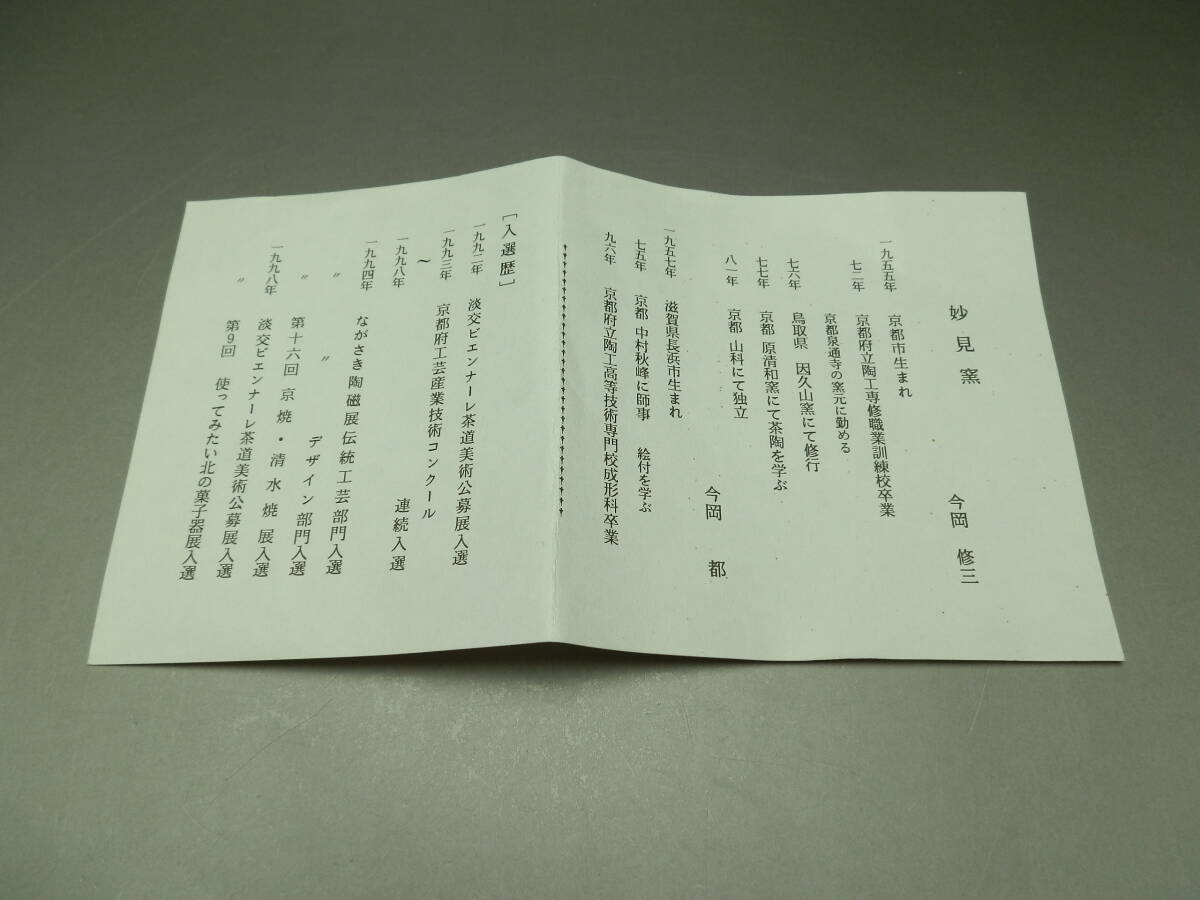 妙見窯
今岡 修三
一九五五年 京都市生まれ
七二年 京都府立陶工専修職業訓練校卒業
京都泉通寺の窯元に勤める
七六年 鳥取県 因久山窯にて修行
七七年 京都 原清和窯にて茶陶を学ぶ
八一年 京都 山科にて独立
今岡 都
一九五七年 滋賀県長浜市生まれ
七五年 京都 中村秋峰に師事 絵付を学ぶ
九六年 京都府立陶工高等技術専門校成形科卒業
［入選歴］
一九九二年 淡交ビエンナーレ茶道美術公募展入選
一九九三年 京都府工芸産業技術コンクール
〜
一九九八年 連続入選
一九九四年 ながさき陶磁展伝統工芸部門入選
〃 〃 デザイン部門入選
〃 第十六回 京焼・清水焼展入選
一九九八年 淡交ビエンナーレ茶道美術公募展入選
〃 第9回 使ってみたい北の菓子器展入選